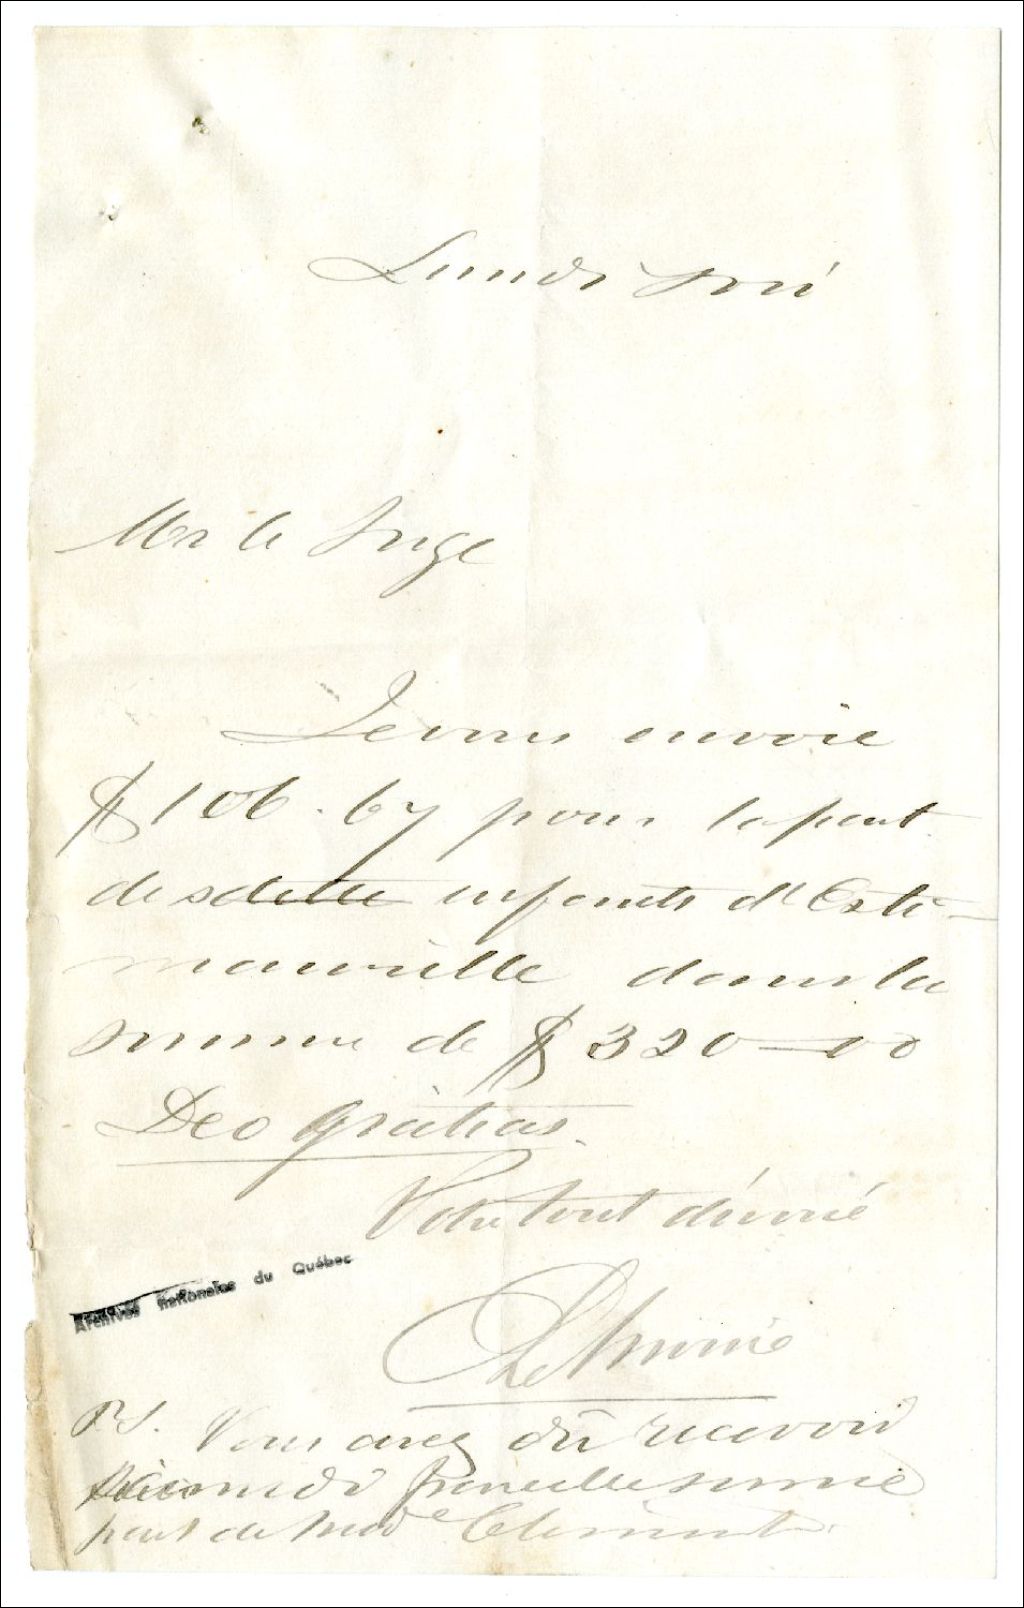 Lundi soir
Mr le Juge
Je vous envoie
$106.67 pour la part
des dette enfants d'Esti-
mauville dans la
somme de $320-00
Deo Gratias.
Votre tout dévoué
Archives Nationales du Québec
P.S. Vous avez dû recevoir
Samedi pareille somme
part de Made Clement.